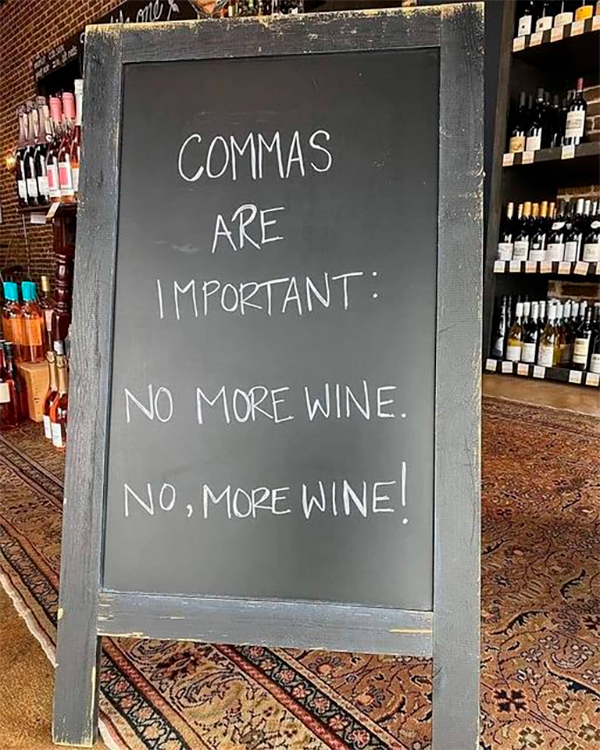 COMMAS
ARE
IMPORTANT:
NO MORE WINE.
NO, MORE WINE!